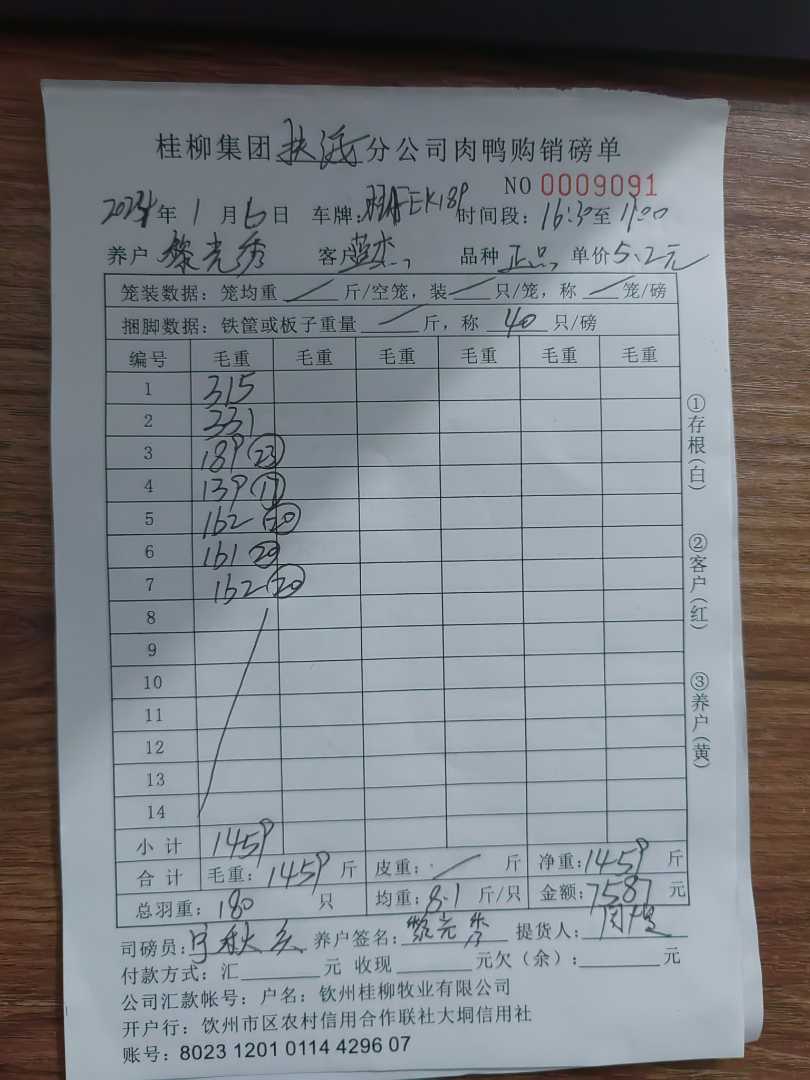 桂柳集团 扶 分公司肉鸭购销磅单
NO 0009091
2024年 1月6日 车牌: FEK189 时间段: 16:30至 17:00
养户 黎光秀 客户 蓝杰 品种 正品 单价 5.2元
笼装数据: 笼均重 / 斤/空笼, 装 / 只/笼, 称 / 笼/磅
捆脚数据: 铁筐或板子重量 / 斤, 称 40 只/磅
编号 毛重 毛重 毛重 毛重 毛重 毛重
1 315
2 331
3 189 (23)
4 139 (17)
5 162 (20)
6 161 (20)
7 162 (20)
8
9
10
11
12
13
14
小计 1459
合计 毛重: 1459 斤 皮重: / 斤 净重: 1459 斤
总羽重: 180 只 均重: 8.1 斤/只 金额: 7587 元
司磅员: 秋 养户签名: 黎光秀 提货人: 
付款方式: 汇 元 收现 元欠(余): 元
公司汇款帐号: 户名: 钦州桂柳牧业有限公司
开户行: 饮州市区农村信用合作联社大垌信用社
账号: 8023 1201 0114 4296 07
①存根(白) ②客户(红) ③养户(黄)